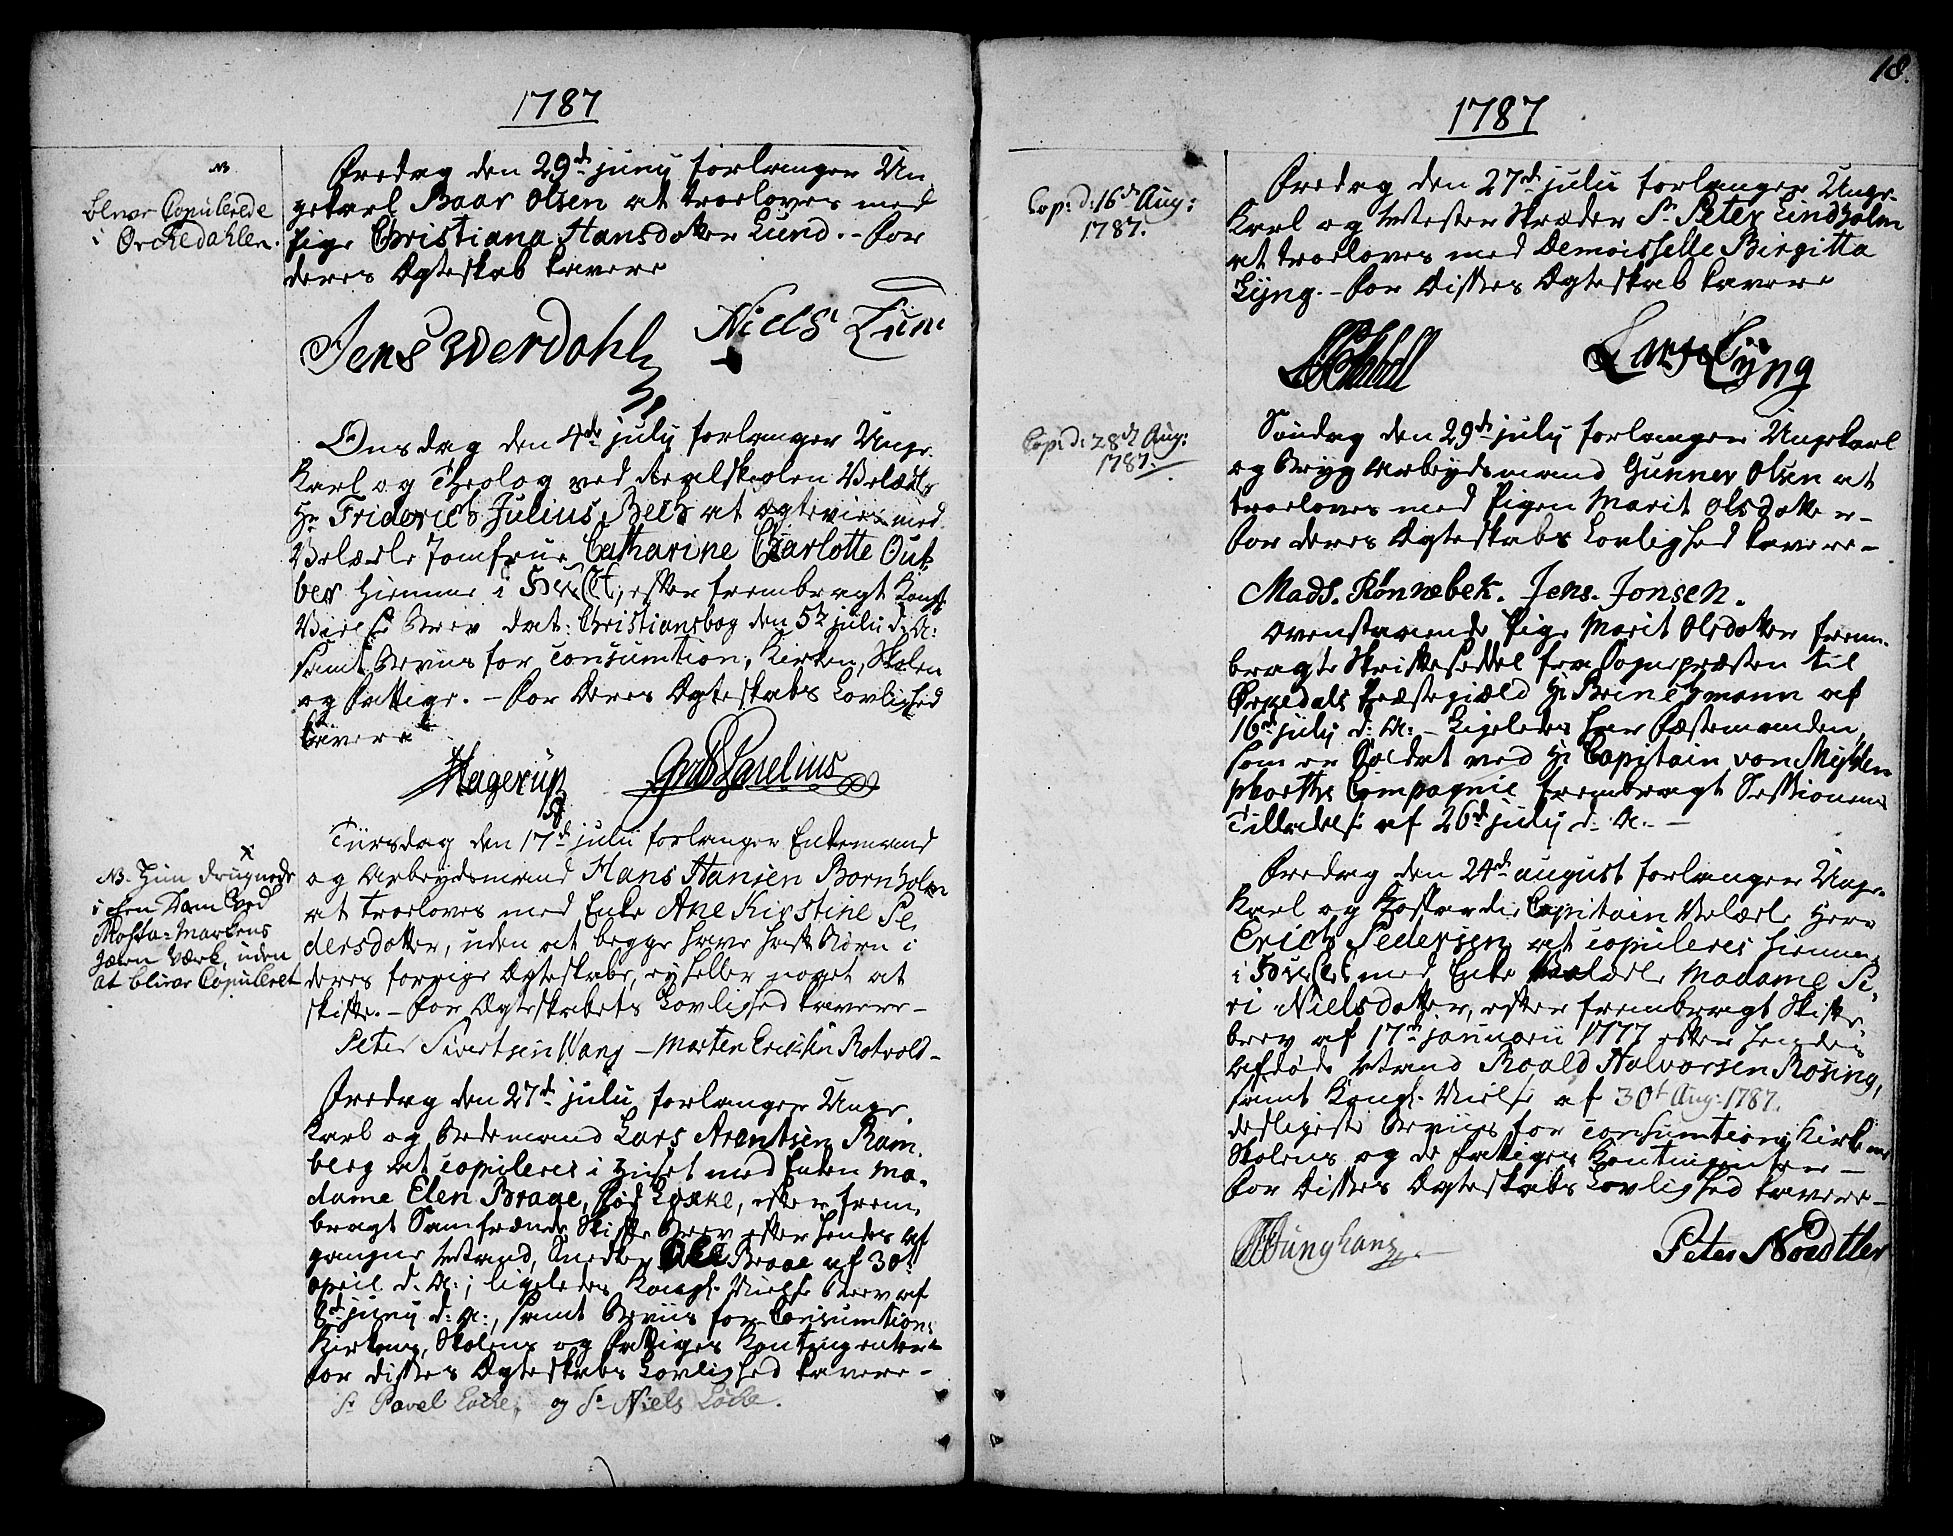 1787
NB
blevne Copulerede
i Orckedahlen.
Fredag den 29de junij forlanger Un
gekarl Baar Olsen at troeloves med
Pige Christiana Hansdotter Lund. - For
deres Ægteskab cavere
Jens Werdahl
Niels Lun
Onsdag den 4de julij forlanger Unge
Karl og Theolog ved Realskolen Velædle
Hr Friderich Julius Bech at ægtevies med
Velædle Jomfrue Catharine Charlotte Out
ber hiemme i Huuset, efter frembragt Kongl.
Vielse Brev dat: Christiansborg den 5te julii d: A:
samt Beviis for Consumtion, Kirken, Skolen
og Fattige. - For deres Ægteskabs Lovlighed
Cavere
Hagerup
Parelius
Tiirsdag den 17de julii forlanger Enkemand
og Arbeydsmand Hans Hansen Bornholm
at troeloves med Enke Ane Kirstine Pe
dersdotter, uden at begge have havt Børn i
deres forrige Ægteskabe, ey heller noget at
skifte. - For Ægteskabets Lovlighed cavere -
Peter Sivertsen Wang - Morten Erichsen Rotvold -
NB. Hun druqnede
i den Dam ved
Marckens
uden
at blive Copuleret
Fredag den 27de julii forlanger Unge
Karl og Bedemand Lars Arentsen Ram
berg at copuleres i Huset med Enken Ma-
dame Elen Braae, fød Løcke, efter frem
bragt Samfrænde Skifte Brev efter hendes af
gangne Mand, Snedker Ole Braae af 30te
April d: A:; ligeledes Kongl. Vielse Brev af
8de junij d: A:, samt Beviis for Consumtion,
Kirkens, Skolens og Fattiges Contingenter -
For disses Ægteskabs Lovlighed cavere -
Sr Pavel Løcke, og Sr Niels Løcke.
18.
1787
Cop: d: 16de Aug:
1787.
Fredag den 27de julii forlanger Unge-
Karl og Mester Skræder Sr Peter Lindholm
at troeloves med Demoisselle Birgitta
Lÿng. - For disses Ægteskab cavere
Lars Lÿng
Cop: d: 28de Aug:
1787.
Søndag den 29de julij forlanger Ungekarl
og Bryg Arbeydsmand Gunner Olsen at
troeloves med Pigen Marit Olsdotter -
For deres Ægteskabs Lovlighed cavere -
Mads. Rønnebek. Jens. Jonsen.
Ovenstaaende Pige Marit Olsdotter frem-
bragte Skrifteseddel fra Sognepræsten til
Orkedals Præstegield Hr Brinchmann af
16de julij d: A: - Ligeledes har Fæstemanden,
som er Soldat ved Hr Capitain von
Compagnie frembragt Sessionens
Tilladelse af 26de julij d: A: -
Fredag den 24de august forlanger Unge-
Karl og Koffardie Capitain Velædle Herr
Erich Pedersen at copuleres hiemme
i Huuset med Enke Velædle Madame Si-
ri Nielsdotter, efter frembragt Skifte
brev af 17de januarii 1777 efter hendes
afdøde Mand Roald Halvorsen Rosing,
samt Kongl. Vielse af 30te Aug: 1787.
desligeste Beviis for Consumtion, Kirkens
Skolens og de Fattiges Contingenter -
For disses Ægteskabs Lovlighed cavere -
Junghans
Peter Noedtler